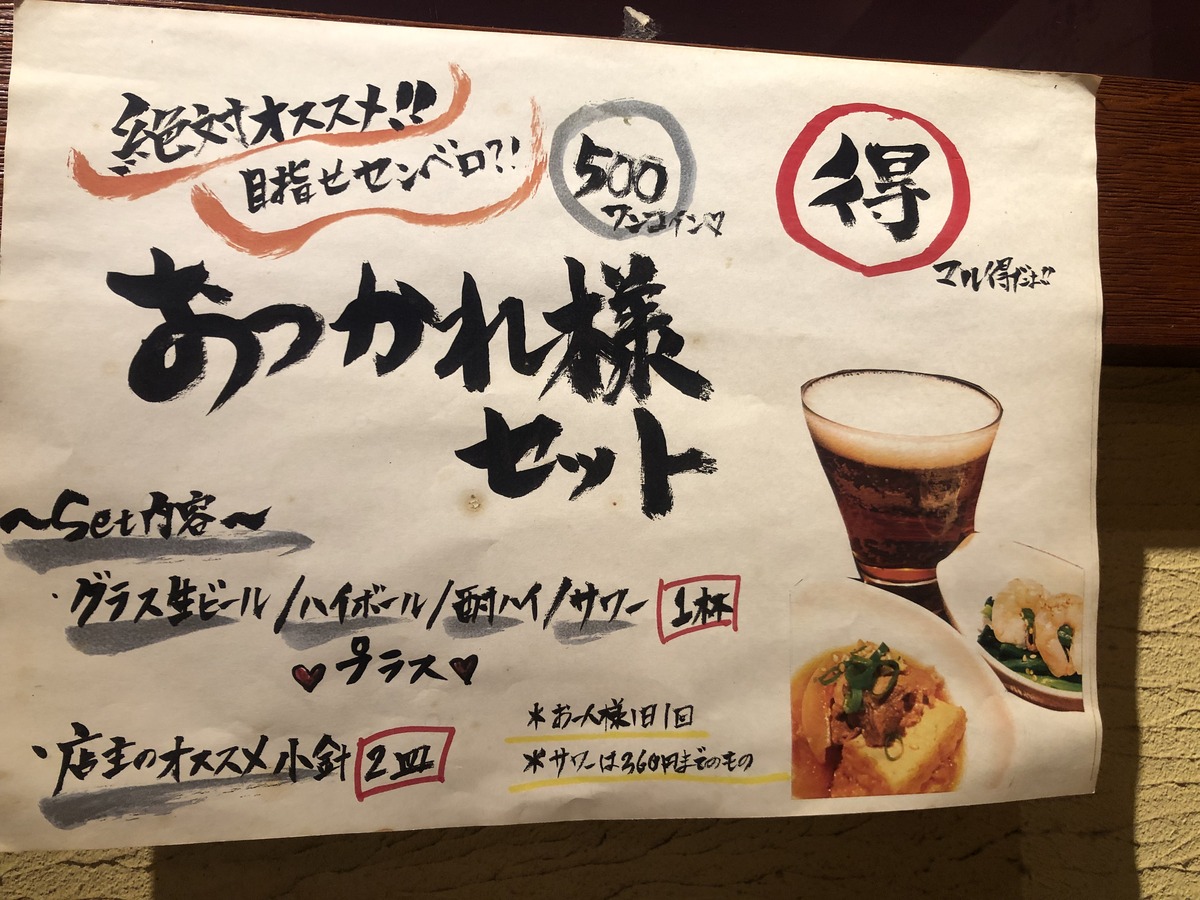 絶対オススメ!!
目指せセンベロ?!
500
ワンコイン♡
得
マル得だよ!!
おつかれ様
セット
～Set内容～
・グラス生ビール/ハイボール/酎ハイ/サワー 1杯
♥プラス♥
・店主のオススメ小針 2皿
＊お一人様1日1回
＊サワーは360円までのもの